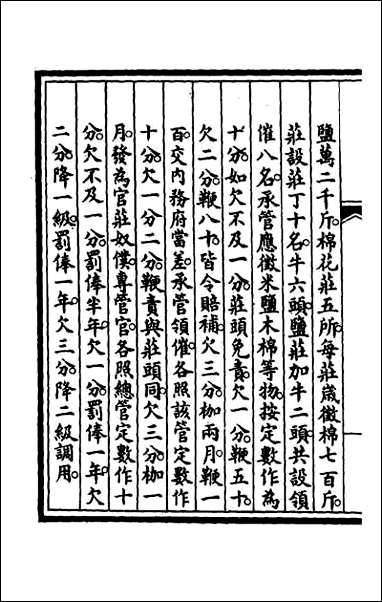 鹽萬二千斤棉花莊五所每莊歲徵棉七百斤
莊設莊丁十名牛六頭鹽莊加牛二頭共設領
催八名承管應徵米鹽木棉等物按定數作為
十分如欠不及一分莊頭免責欠一分鞭五十
欠二分鞭八十皆令賠補欠三分枷兩月鞭一
百交內務府當差承管領催各照該管定數作
十分欠一分二分鞭責與莊頭同欠三分枷一
月發為官莊奴僕專管官各照總管定數作十
分欠不及一分罰俸半年欠一分罰俸一年欠
二分降一級罰俸一年欠三分降二級調用